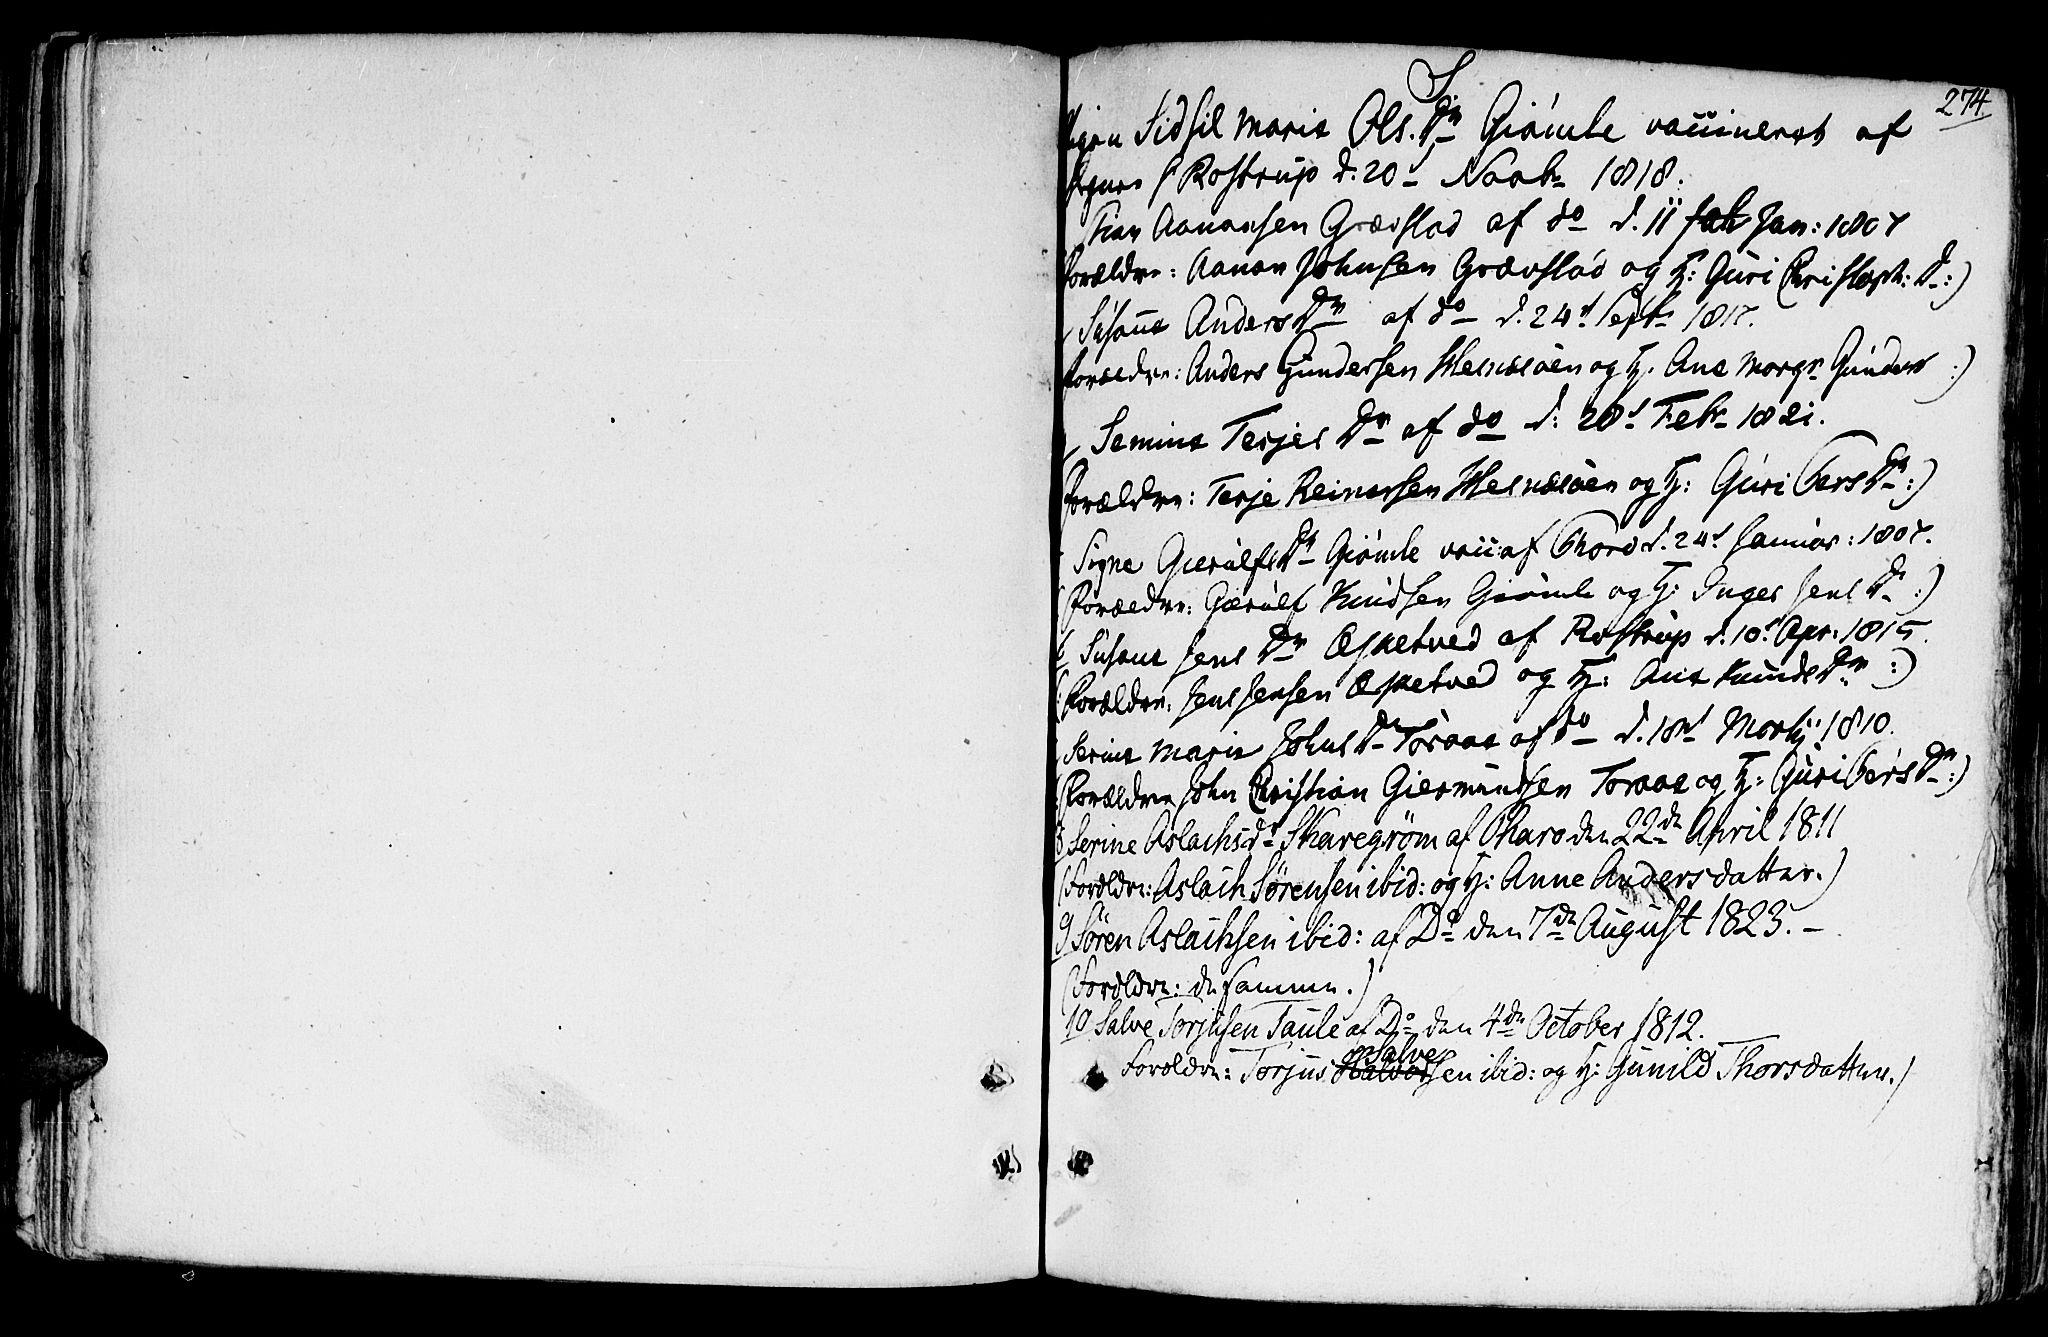 S
274
Sidsil Marie Ols. Dtr Giömle vaccineret af
Rostrup d. 20 Novbr 1818.
Aanonsen Grævstad af do d. 11 Jan: 1807
Forældre: Aanon Johnsen Grævstad og H: Guri Christoph: D:)
Susanne Anders Dtr af do d. 24de Septbr 1817.
Forældre: Anders Gundersen Hesnesøen og H. Ane Margr Gunders :)
Semine Terjes Dtr af do d: 28de Febr 1821.
Forældre: Terje Reinersen Hesnesøen og H: Guri Bers Dtr:)
Signe Gierulfs Dtr Giömle vacc: af Thoro d. 24de Januar: 1807.
(Forældre: Gierulf Knudsen Giömle og H: Inger Jens Dr :)
Susane Jens Dtr Esketved af Rostrup d. 10de Apr: 1815.
(Forældre: Jens Jensen Esketved og H: Ane Knuds Dtr :)
Serine Marie Johns Dr Toraas af do d. 18de Martij 1810.
(Forældre John Christian Giermundsen Toraas og H: Guri Bers Dtr:)
8 Serine Aslachsdr Skaregrøm af Tharo den 22de April 1811
(Forældre: Aslach Sørensen ibid: og H: Anne Andersdatter.)
9 Søren Aslachsen ibid: af Do den 7de August 1823. –
(Forældre: de samme.)
10 Salve Torjusen Taule af Do den 4de October 1812.
Salve
Forældre: Torjus Halvorsen ibid: og H: Gunild Thorsdatter.)